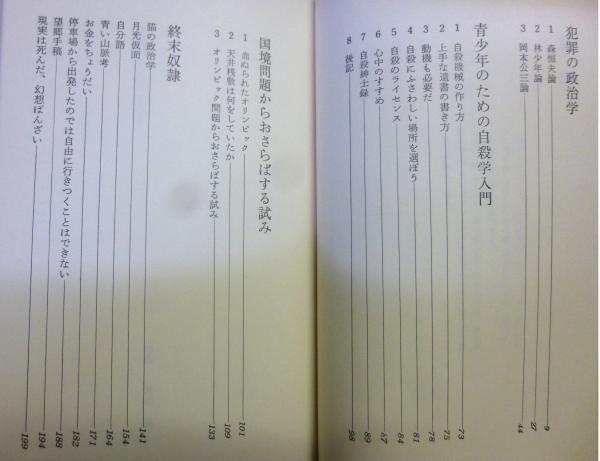 犯罪の政治学
1 森恒夫論 9
2 林少年論 27
3 岡本公三論 44
青少年のための自殺学入門
1 自殺機械の作り方 73
2 上手な遺書の書き方 75
3 動機も必要だ 78
4 自殺にふさわしい場所を選ぼう 81
5 自殺のライセンス 84
6 心中のすすめ 87
7 自殺紳士録 89
8 後記 98
国境問題からおさらばする試み
1 血ぬられたオリンピック 101
2 天井桟敷は何をしていたか 109
3 オリンピック問題からおさらばする試み 133
終末奴隷
猫の政治学 141
月光仮面 154
自分語 164
青い山脈考 171
お金をちょうだい 182
停車場から出発したのでは自由に行きつくことはできない 188
望郷手稿 194
現実は死んだ、幻想ばんざい 199